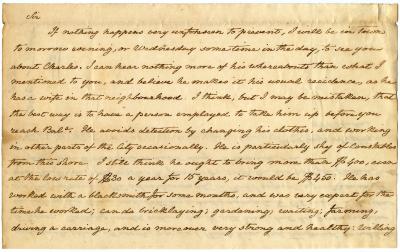 Sir
If nothing happens very unforseen to prevent, I will be in town
tomorrow evening, or Wednesday sometime in the day, to see you
about Charles. I can hear nothing more of his whereabouts than what I
mentioned to you, and believe he makes it his usual residence, as he
has a wife in that neighbourhood. I think, but I may be mistaken, that
the best way is to have a person employed to take him up before you
reach Balto. He avoids detection by changing his clothes, and working
in other parts of the City occasionally. He is particularly shy of Constables
from this Shore. I still think he ought to bring more than $400, even
at the low rate of $30 a year for 15 years, it would be $450. He has
worked with a blacksmith for some months, and was very expert for the
time he worked; can do bricklaying; gardening; waiting; farming,
driving a carriage, and is moreover very strong and healthy; Willing